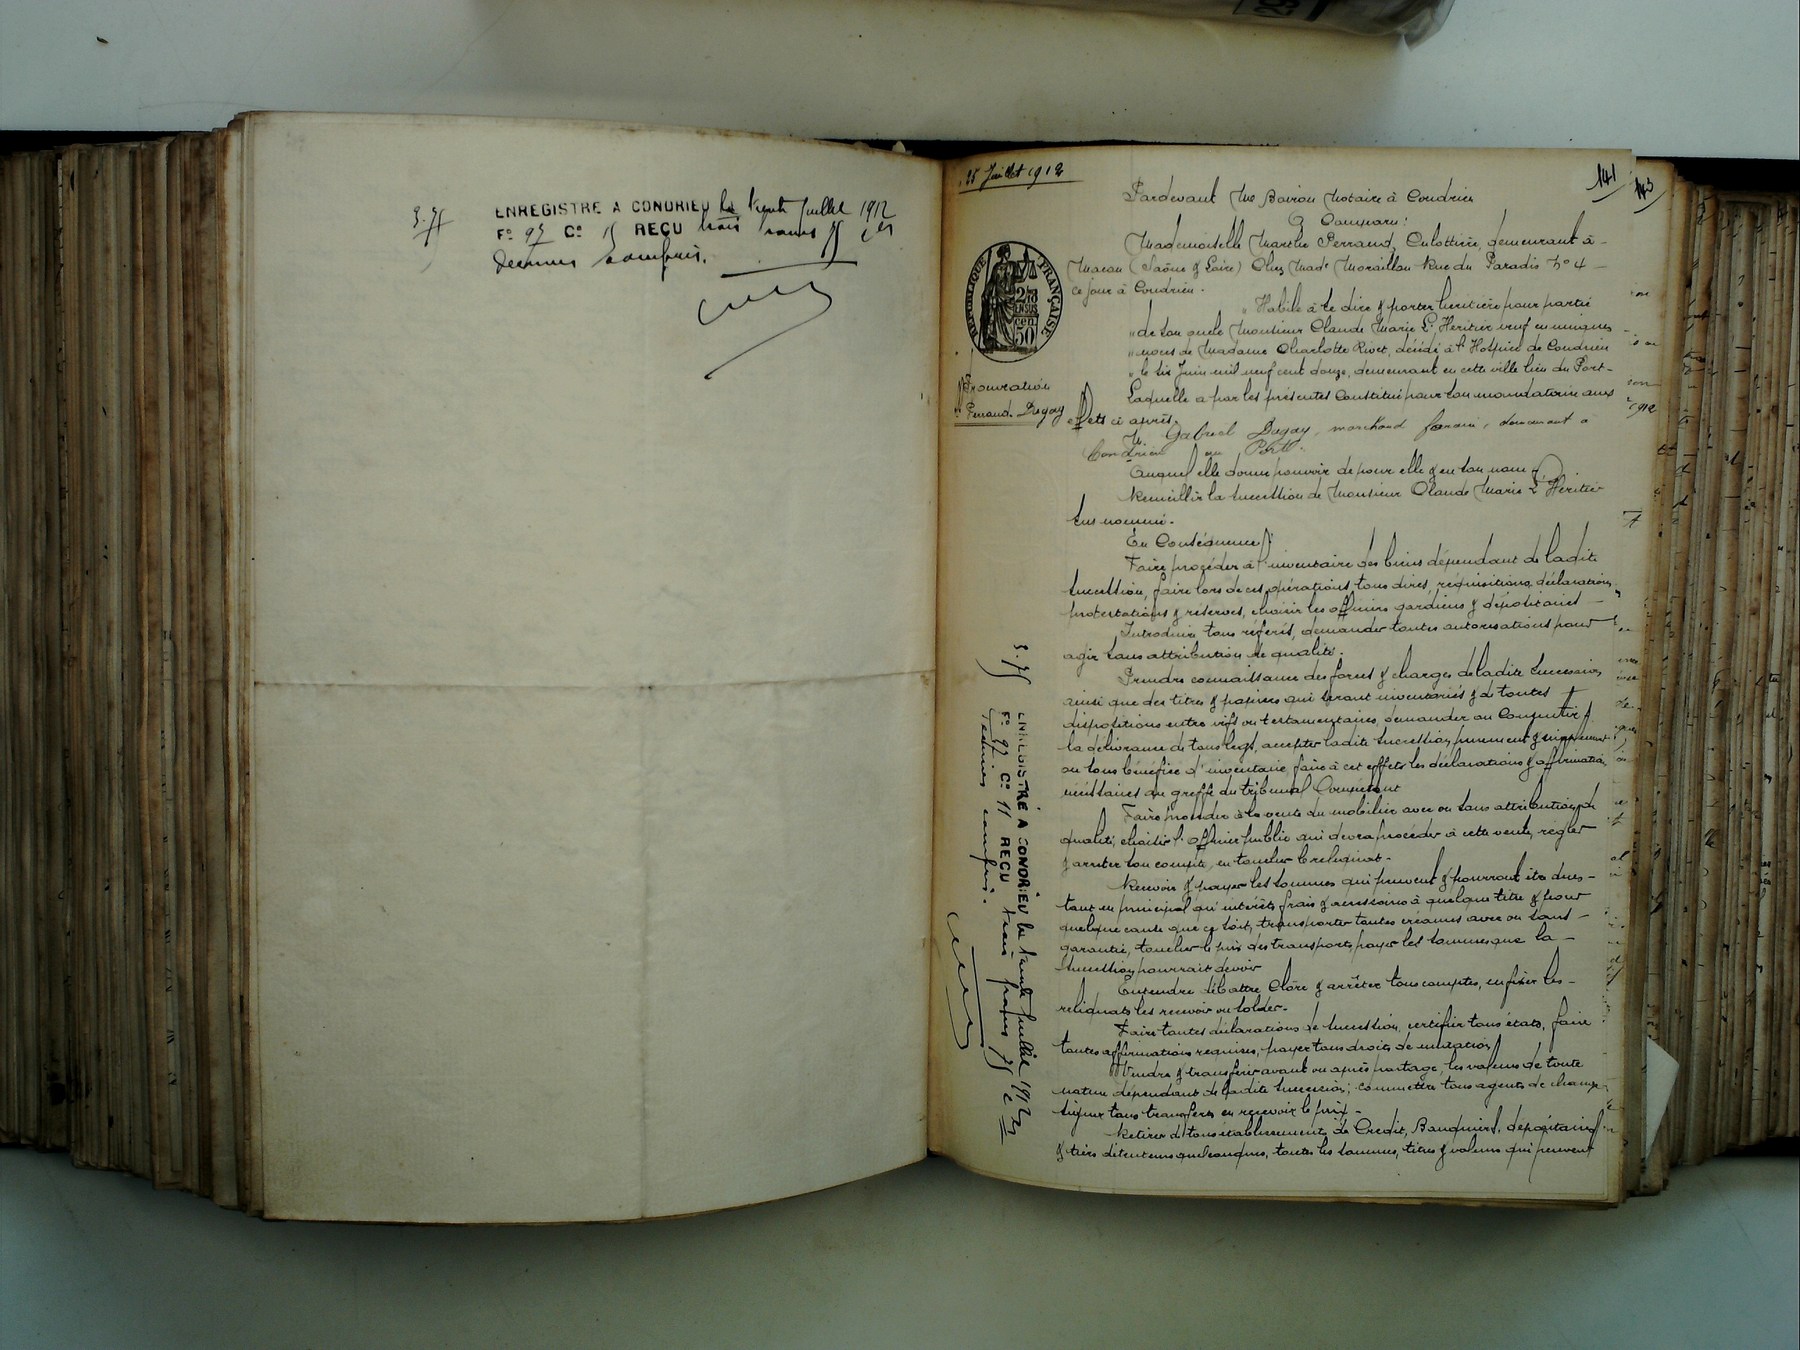 3.75
ENREGISTRE A CONDRIEU le trente Juillet 1912
Fo 97 Co 15 REÇU trois francs 75 ces
Decimes compris.
25 Juillet 1912
141
143
Pardevant Me Boiron Notaire à Condrieu
A Comparu:
Mademoiselle Marthe Perraud, Culottière, demeurant à
Macon (Saône & Loire) Chez Made Moraillon Rue du Paradis No 4
ce jour à Condrieu.
Habile à se dire & porter héritière pour partie
de son oncle Monsieur Claude Marie L'Heritier veuf en uniques
noces de Madame Charlotte Rivet, décédé à l'Hospice de Condrieu
le six Juin mil neuf cent douze, demeurant en cette ville lieu du Port
RÉPUBLIQUE FRANÇAISE
50
Procuration
Perraud. Dugay
Laquelle a par les présentes Constitué pour son mandataire aux
effets ci après
M. Gabriel Dugay, marchand forain, demeurant à
Condrieu au Port.
Auquel elle donne pouvoir de pour elle & en son nom
Recueillir la succession de Monsieur Claude Marie L'Heritier
sus nommé.
En Conséquence:
Faire procéder à l'inventaire des biens dépendant de ladite
succession, faire lors de ces opérations tous dires, réquisitions, déclarations
protestations & réserves, choisir les officiers gardiens & dépositaires
Introduire tous référés, demander toutes autorisations pour
agir sans attribution de qualité.
Prendre connaissance des forces & charges de ladite succession
ainsi que des titres & papiers qui seront inventoriés & de toutes
dispositions entre vifs ou testamentaires, demander ou Consentir
la délivrance de tous legs, accepter ladite succession purement & simplement
ou sous bénéfice d'inventaire, faire à cet effets les déclarations & affirmations
nécessaires au greffe du tribunal Compétent
Faire procéder à la vente du mobilier avec ou sans attribution de
qualité, choisir l'officier public qui devra procéder à cette vente, régler
& arrêter son compte, en toucher le reliquat.
Recevoir & payer les sommes qui peuvent & pourront être dues
tant en principal qu'intérêts frais & accessoires à quelque titre & pour
quelque cause que ce soit, transporter toutes créances avec ou sans
garantie, toucher le prix des transports, payer les sommes que la
succession pourrait devoir
Entendre débattre Clôre & arrêter tous comptes, en fixer les
reliquats les recevoir ou solder.
Faire toutes déclarations de succession, certifier tous états, faire
toutes affirmations requises, payer tous droits de mutation
Vendre & transférer avant ou après partage, les valeurs de toute
nature dépendant de ladite succession; commettre tous agents de change
signer tous transferts en recevoir le prix.
Retirer de tous établissements de Credit, Banquiers, dépositaires
& tiers détenteurs quelconques, toutes les sommes, titres & valeurs qui peuvent
3.75
ENREGISTRÉ A CONDRIEU le trente Juillet 1912
Fo 97 Co 11 REÇU trois francs 75 c
Decimes compris.